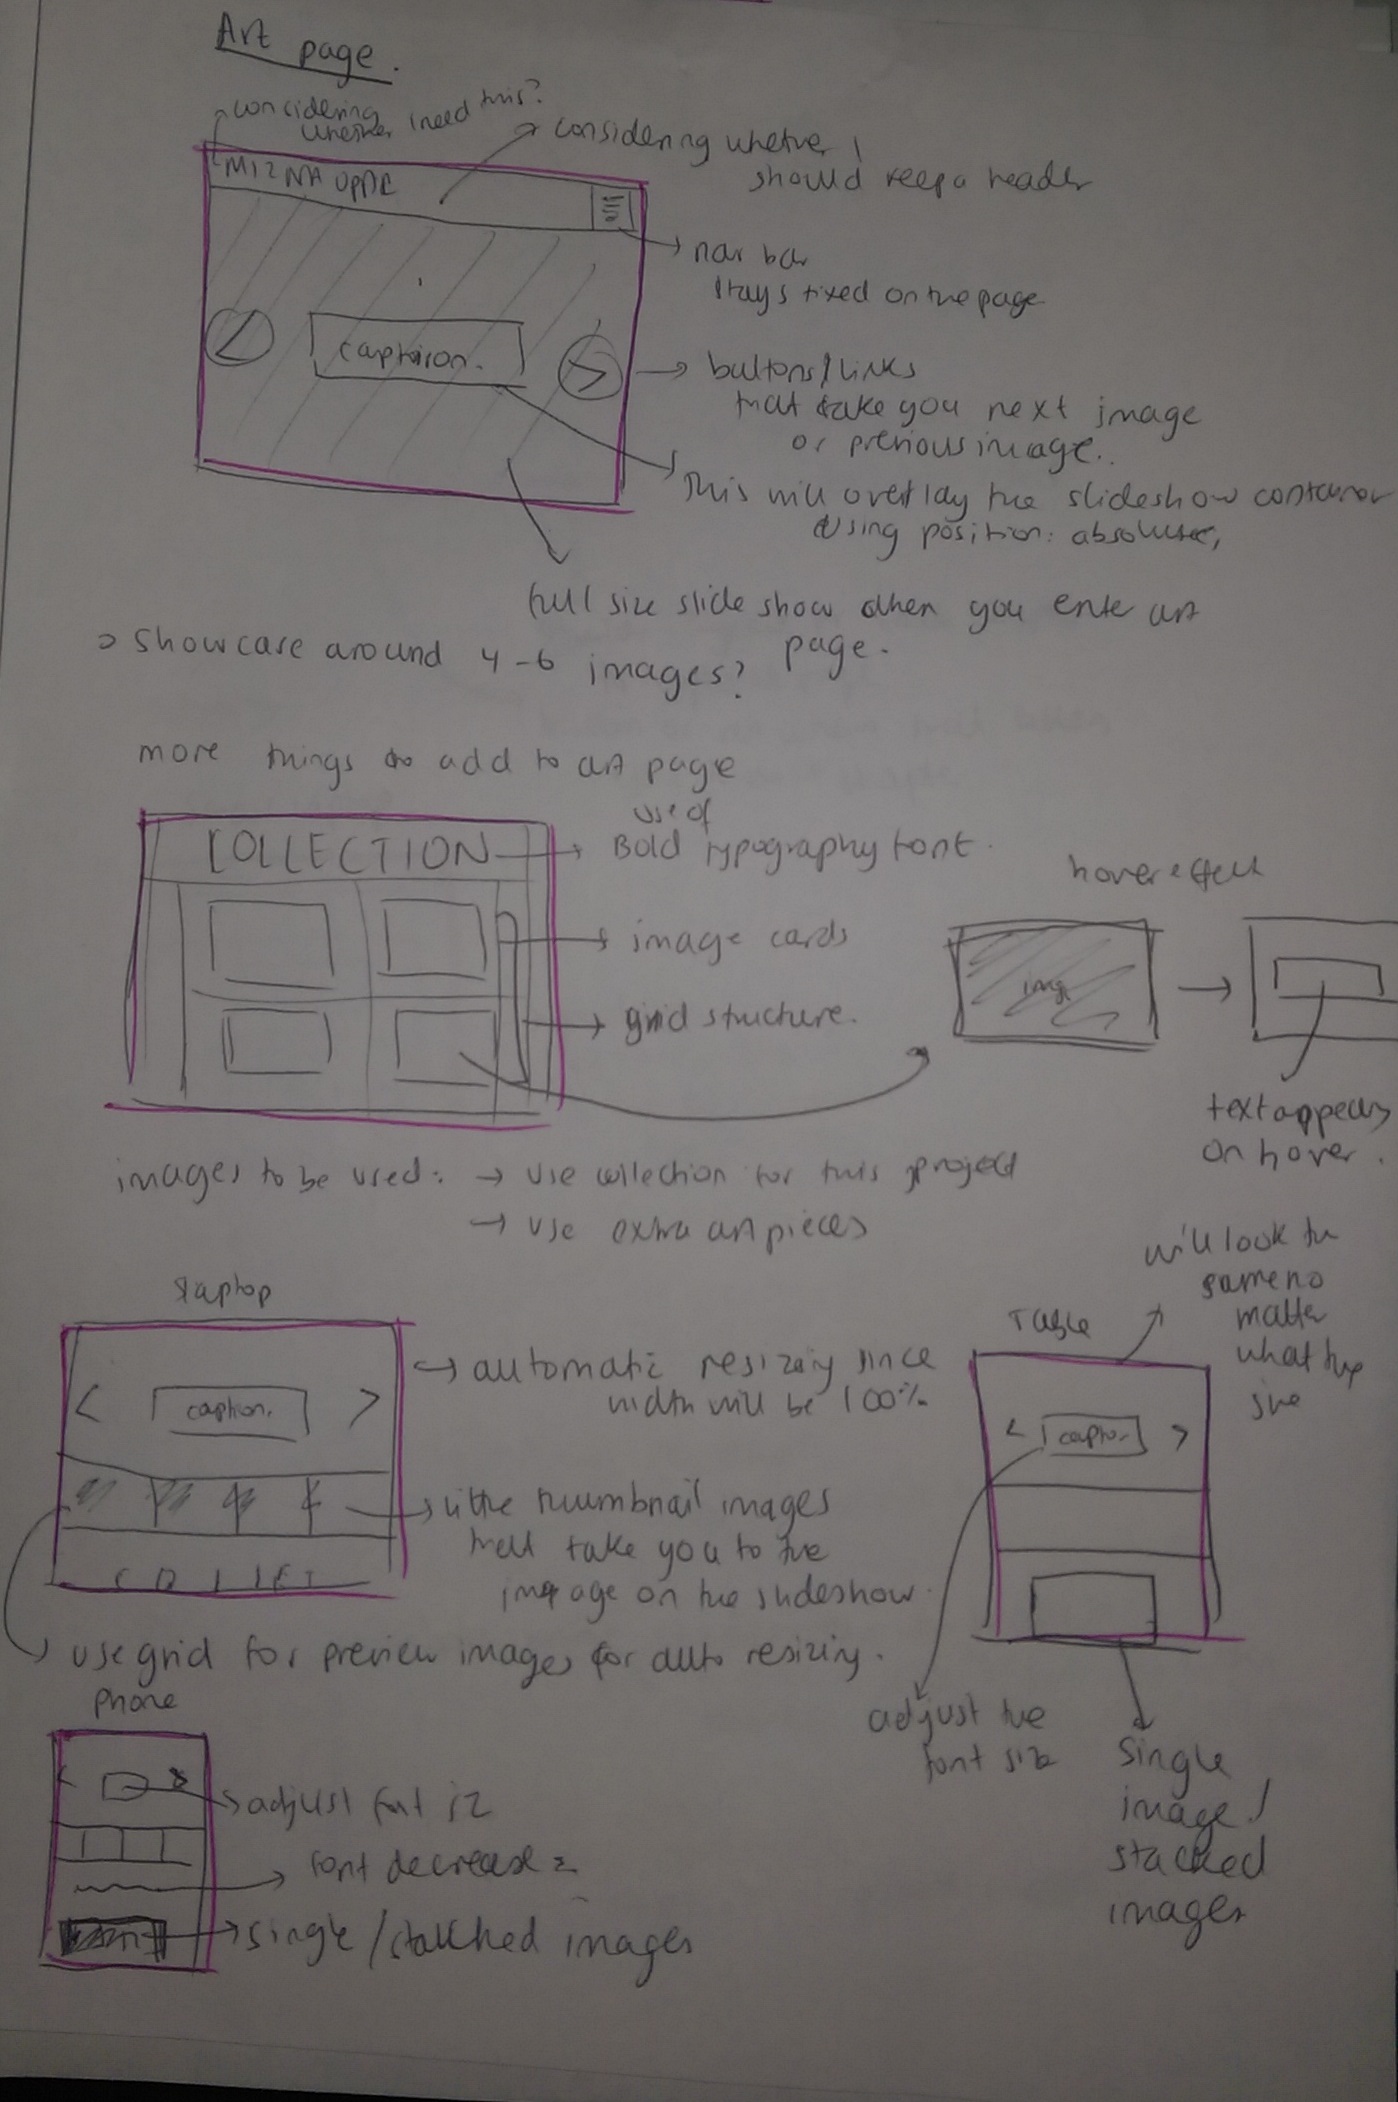 Art page.
considering
whether i need this?
considering whether I
should keep a header
MIZNA
nav bar
stays fixed on the page
<
caption.
>
buttons/links
that take you next image
or previous image..
This will overlay the slideshow container
using position: absolute,
full size slide show when you enter art
page.
> showcase around 4-6 images?
more things to add to art page
COLLECTION
use of
Bold typography font.
image cards
grid structure.
hover effect
img
text appears
on hover.
images to be used: → use collection for this project
→ use extra art pieces
laptop
< caption. >
automatic resizing since
width will be 100%
little thumbnail images
that take you to the
image on the slideshow.
COLLECT
use grid for preview images for auto resizing.
Table
will look the
same no
matter
what the
size
< caption >
adjust the
font size
single
image /
stacked
images
phone
< >
adjust font
font decrease
single/stacked images